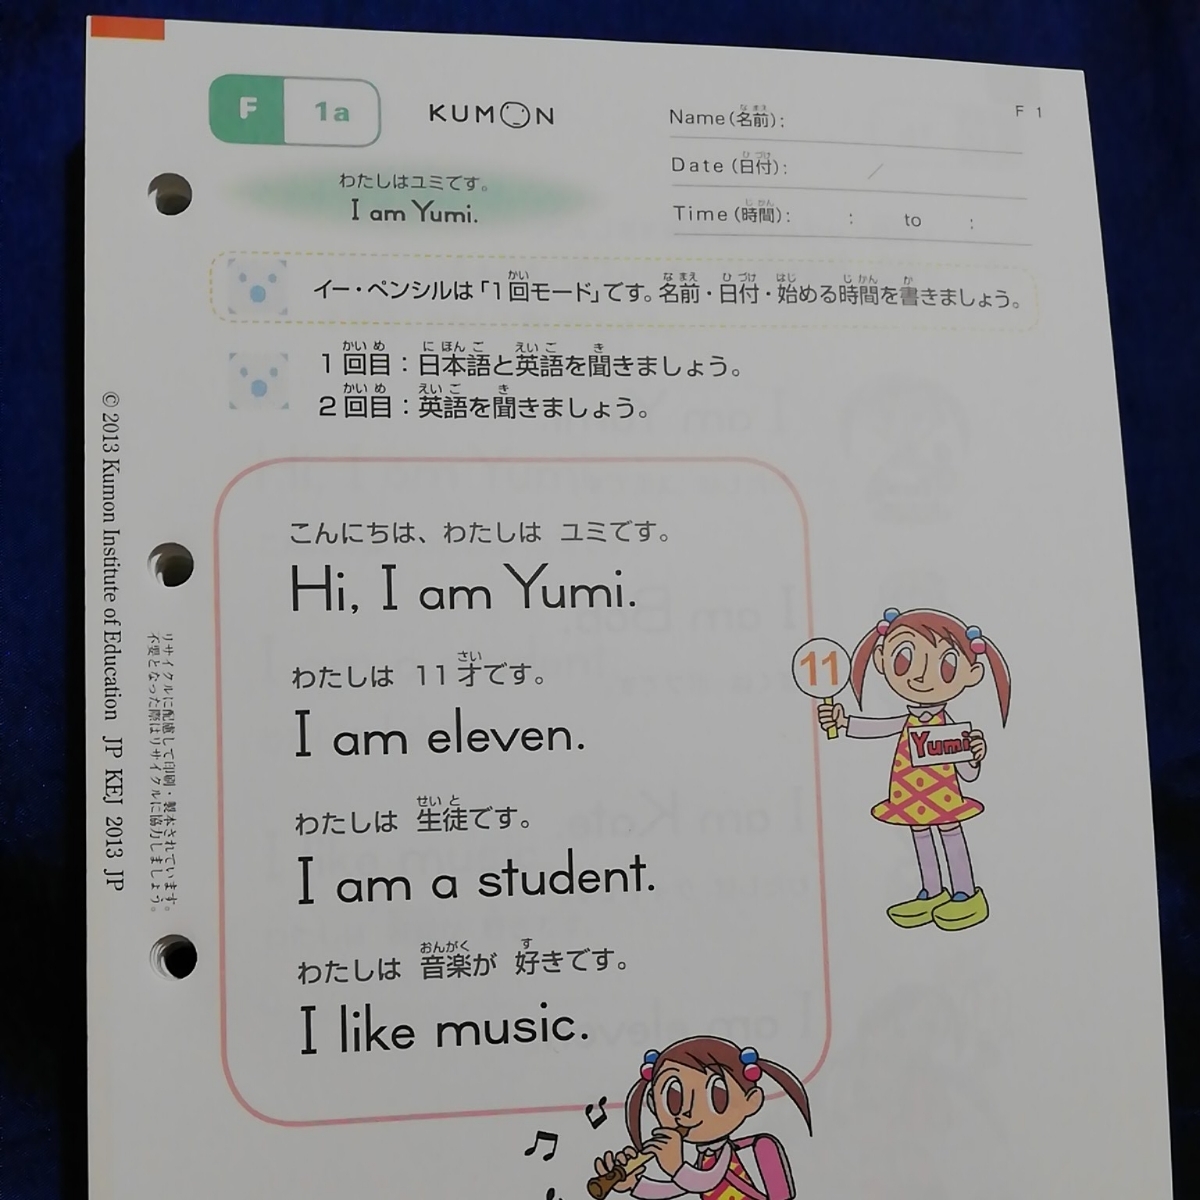 F 1a
KUMON
Name(名前):
F 1
Date(日付): /
Time(時間): : to :
わたしはユミです。
I am Yumi.
イー・ペンシルは「1回モード」です。名前・日付・始める時間を書きましょう。
1回目：日本語と英語を聞きましょう。
2回目：英語を聞きましょう。
こんにちは、わたしは ユミです。
Hi, I am Yumi.
わたしは 11才です。
I am eleven.
わたしは 生徒です。
I am a student.
わたしは 音楽が 好きです。
I like music.
11
Yumi
© 2013 Kumon Institute of Education JP KEJ 2013 JP
リサイクルに配慮して印刷・製本されています。
不要となった際はリサイクルに協力しましょう。